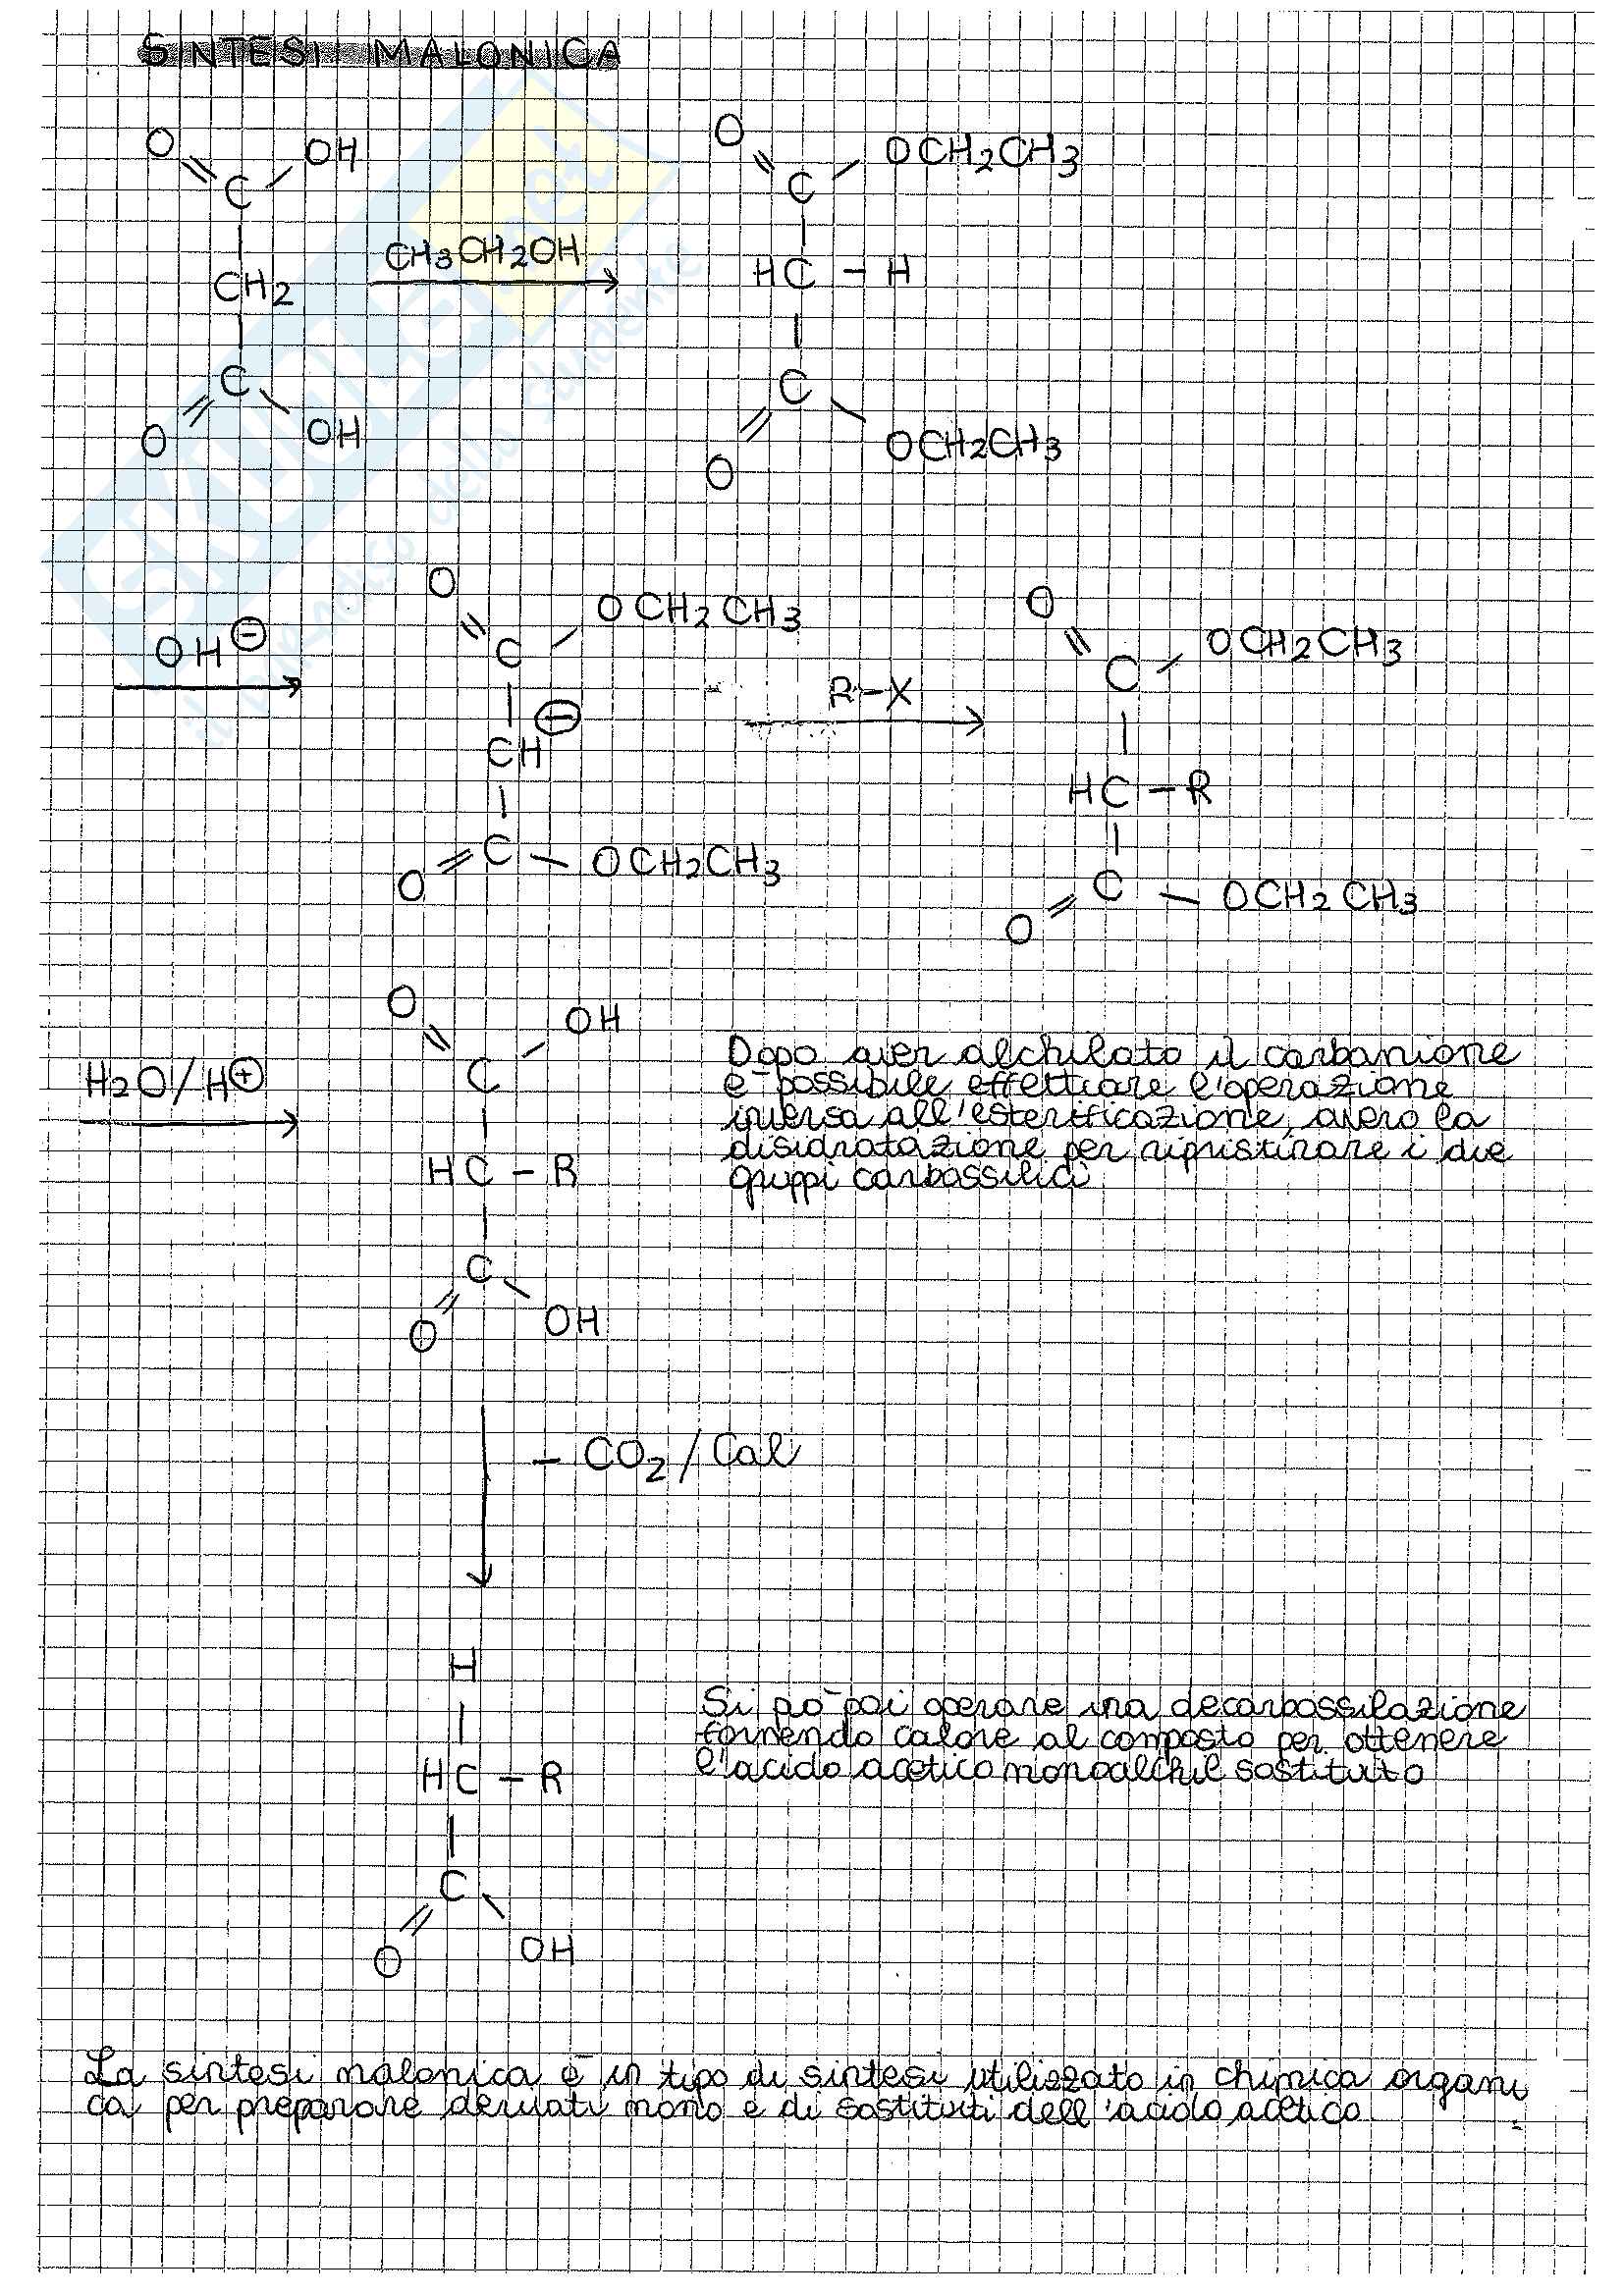 SINTESI MALONICA
O OH
C
CH2
C
O OH
CH3CH2OH
O OCH2CH3
C
HC - H
C
OCH2CH3
O
OH⊖
O OCH2CH3
C
CH⊖
C OCH2CH3
O
R-X
O OCH2CH3
C
HC - R
C OCH2CH3
O
H2O/H⊕
O OH
C
HC - R
C
O OH
Dopo aver alchilato il carbanione
è possibile effettuare l'operazione
inversa all'esterificazione, ovvero la
disidratazione per ripristinare i due
gruppi carbossilici
- CO2/Cal
H
HC - R
C
O OH
Si può poi operare una decarbossilazione
fornendo calore al composto per ottenere
l'acido acetico monoalchil sostituito
La sintesi malonica è un tipo di sintesi utilizzato in chimica organi
ca per preparare derivati mono e di sostituiti dell'acido acetico
SKUOLA.net
il paradiso dello studente